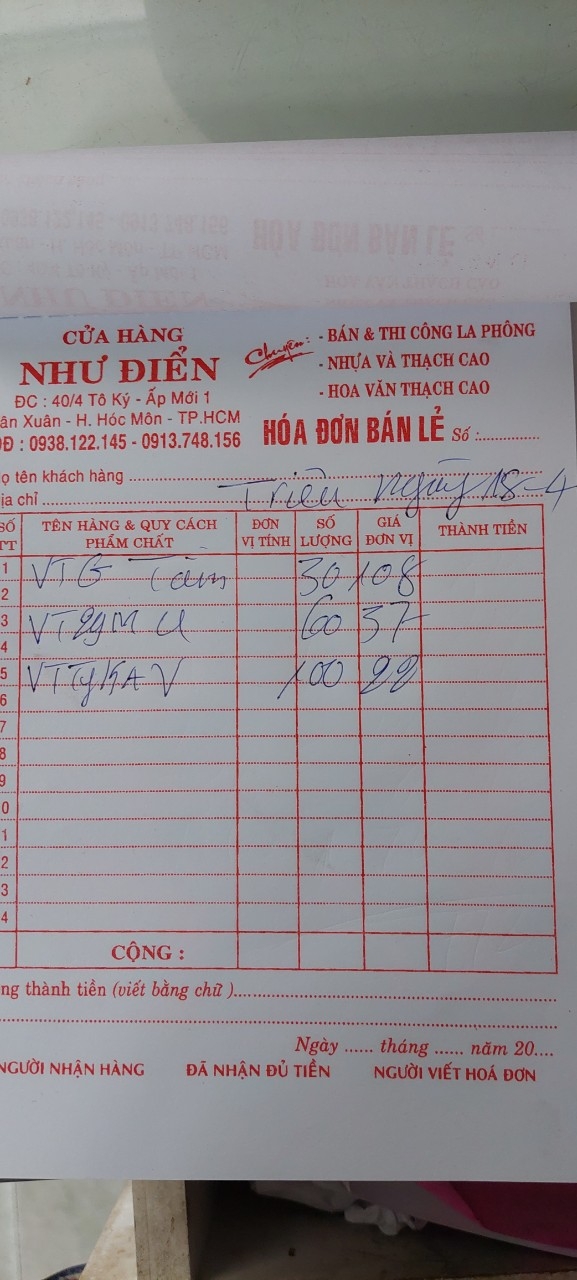 CỬA HÀNG
NHƯ ĐIỂN
ĐC : 40/4 Tô Ký - Ấp Mới 1
ân Xuân - H. Hóc Môn - TP.HCM
Đ : 0938.122.145 - 0913.748.156
Chuyên : - BÁN & THI CÔNG LA PHÔNG
- NHỰA VÀ THẠCH CAO
- HOA VĂN THẠCH CAO
HÓA ĐƠN BÁN LẺ Số :
ọ tên khách hàng
ịa chỉ Triều ngày 18-4
SỐ TT TÊN HÀNG & QUY CÁCH PHẨM CHẤT ĐƠN VỊ TÍNH SỐ LƯỢNG GIÁ ĐƠN VỊ THÀNH TIỀN
1 VTG 30 108
2
3 VT29M U 60 37
4
5 100 22
6
7
8
9
0
1
2
3
4
CỘNG :
ng thành tiền (viết bằng chữ )
Ngày ...... tháng ...... năm 20....
NGƯỜI NHẬN HÀNG ĐÃ NHẬN ĐỦ TIỀN NGƯỜI VIẾT HOÁ ĐƠN